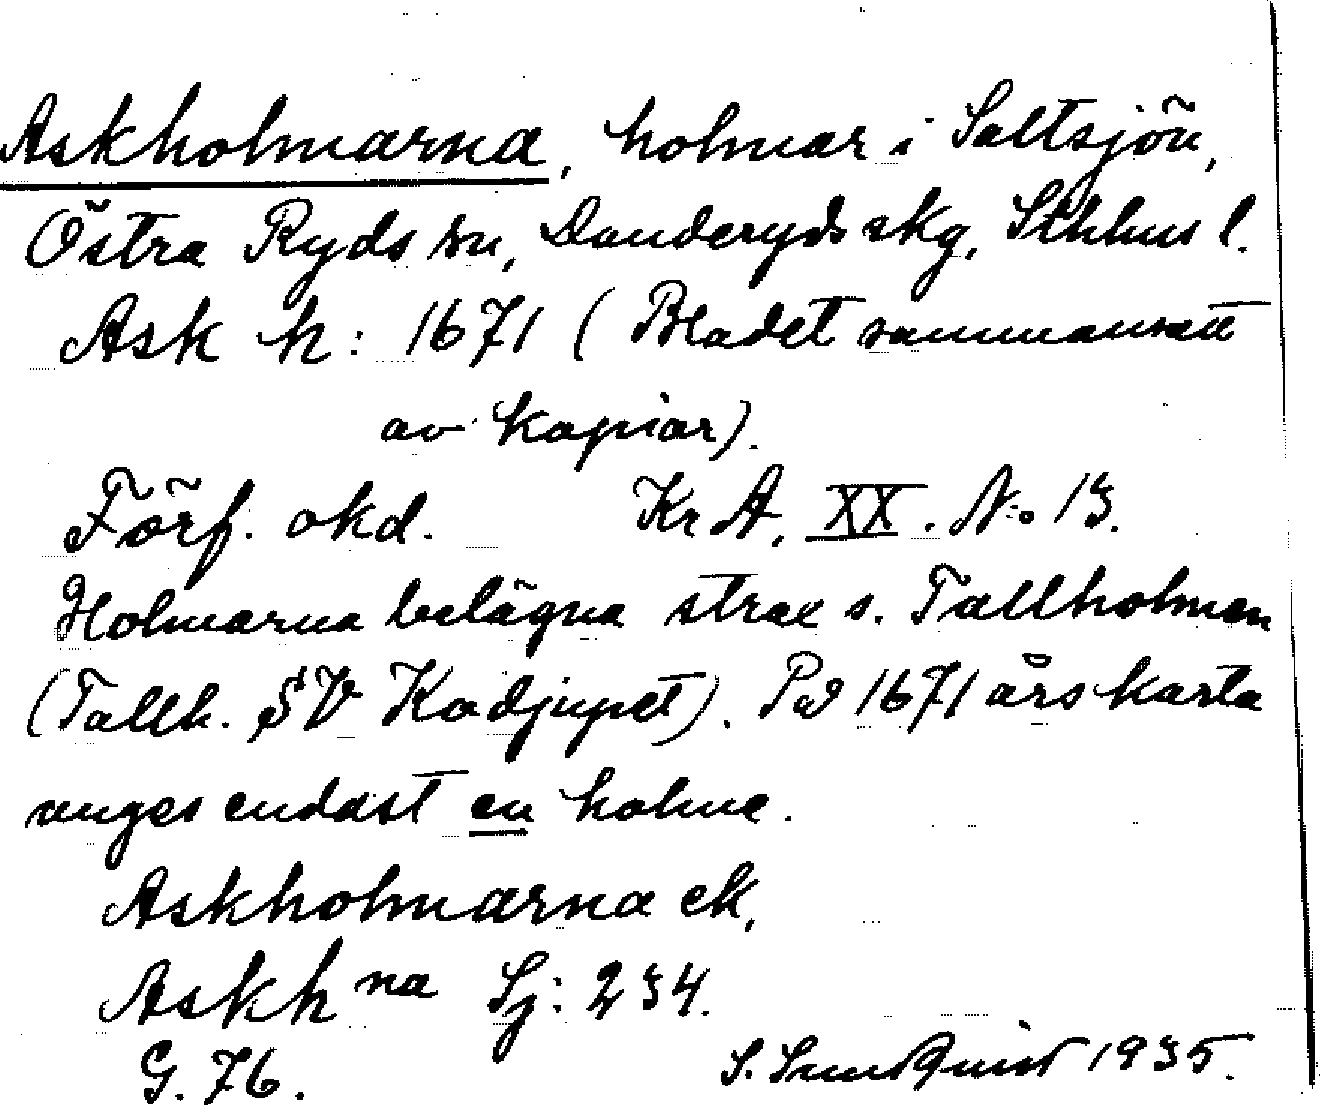 Askholmarna, holmar i Saltsjön,
Östra Ryds sn, Danderyds skg, Sthlms l.
Ask h: 1671 (Bladet sammansatt
av kopior).
Förf. okd. Kr A. XX. N:o 13.
Holmarna belägna strax s. Tallholmen
(Tallh. SV Kodjupet). På 1671 års karta
anges endast en holme.
Askholmarna ek,
Askh na Sj: 234.
G. 76. S. Sundquist 1935.